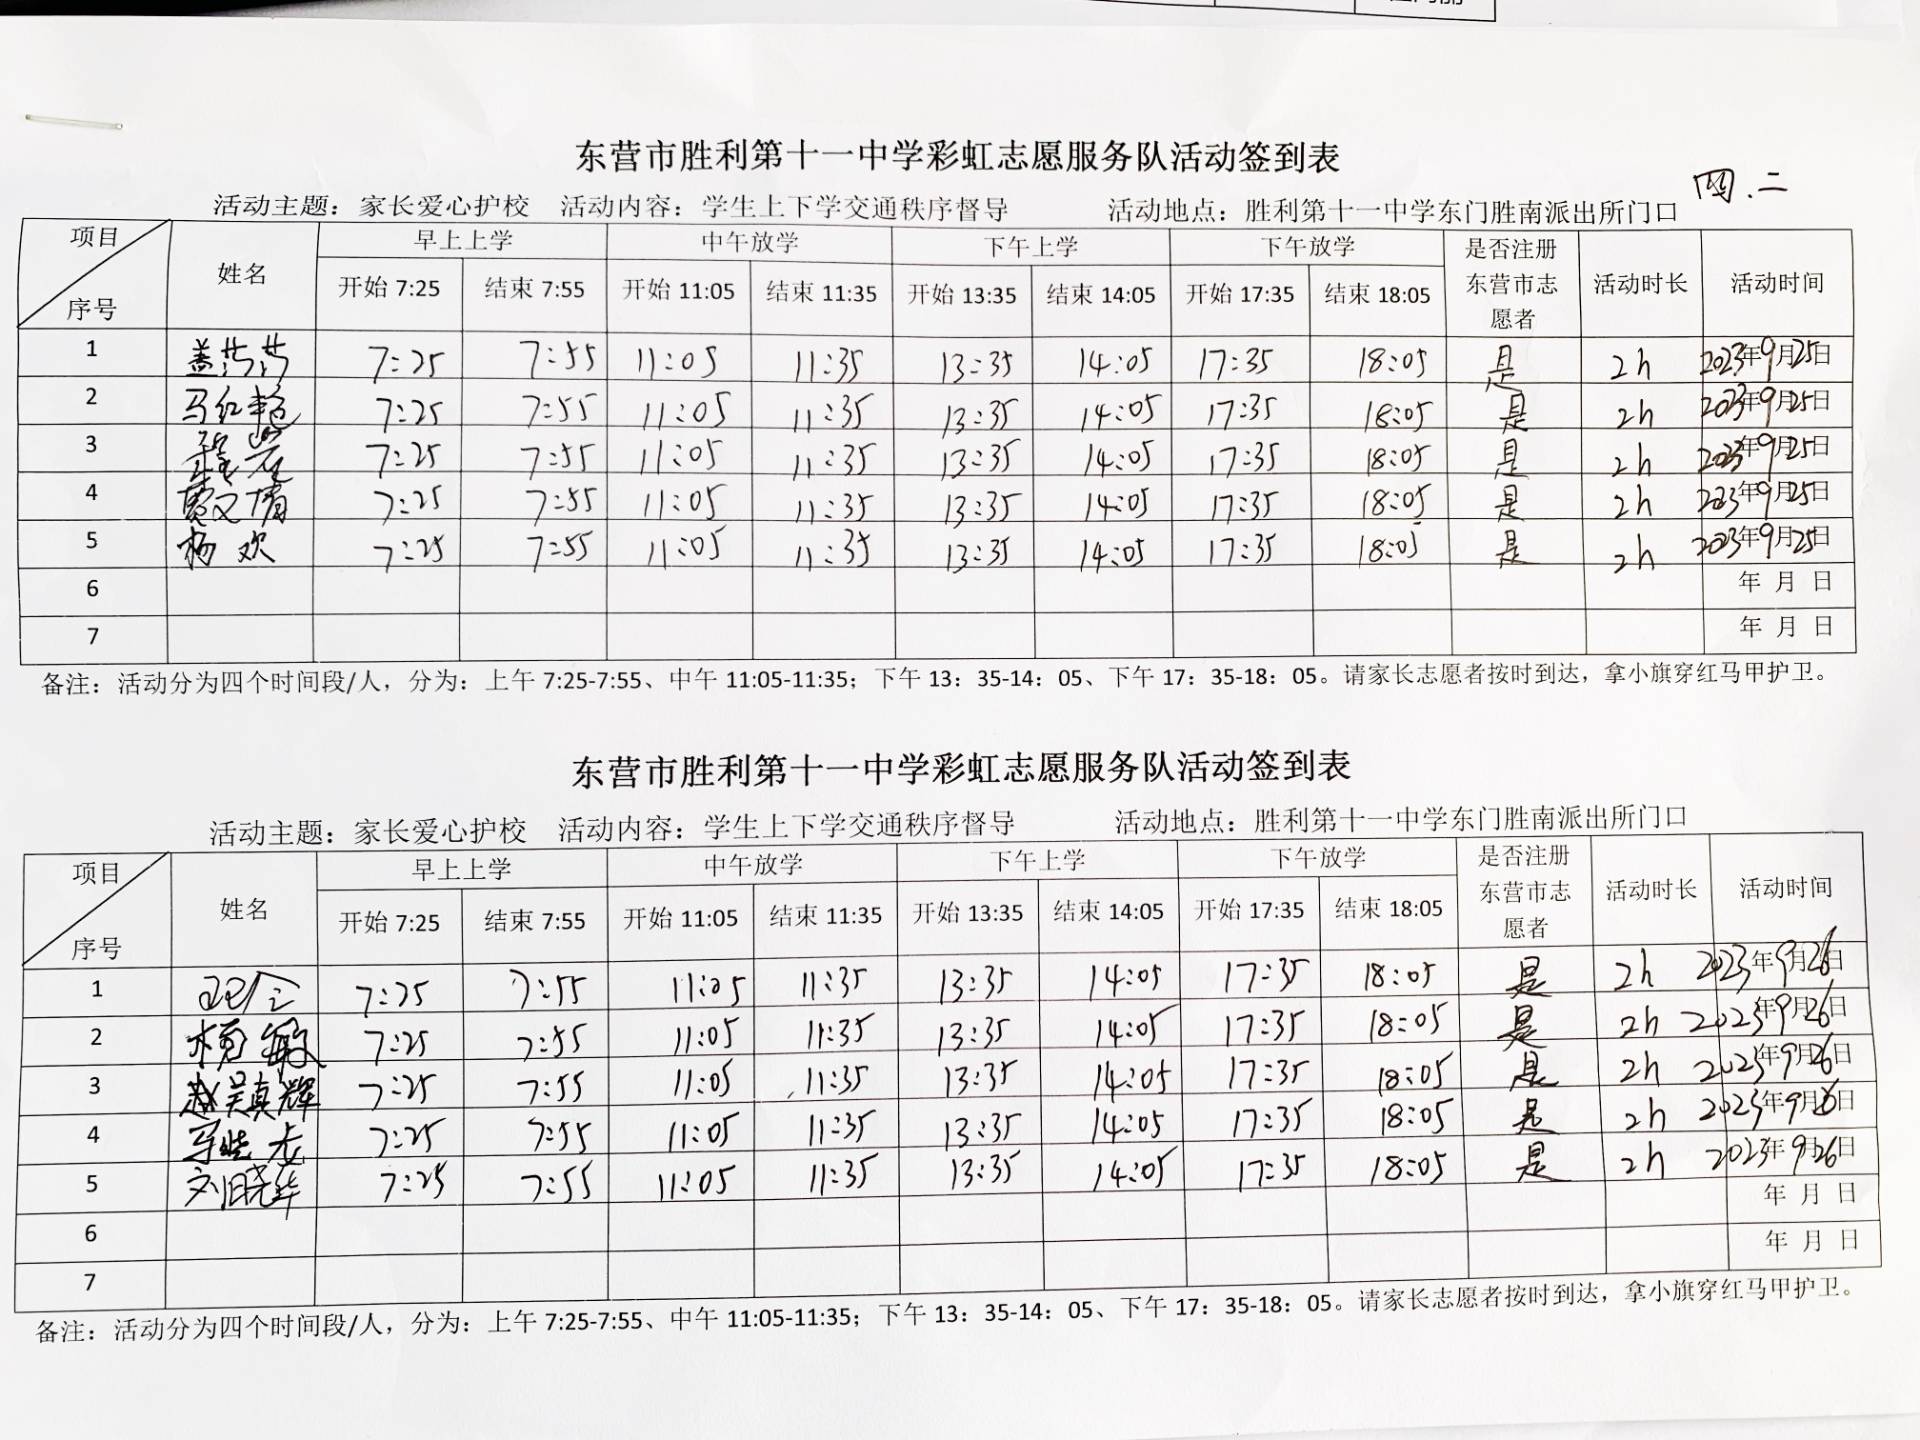 东营市胜利第十一中学彩虹志愿服务队活动签到表
四.二
活动主题：家长爱心护校 活动内容：学生上下学交通秩序督导 活动地点：胜利第十一中学东门胜南派出所门口
项目 序号 姓名 早上上学 中午放学 下午上学 下午放学 是否注册东营市志愿者 活动时长 活动时间
开始 7:25 结束 7:55 开始 11:05 结束 11:35 开始 13:35 结束 14:05 开始 17:35 结束 18:05
1 7:25 7:55 11:05 11:35 13:35 14:05 17:35 18:05 是 2h 2023年9月25日
2 马红艳 7:25 7:55 11:05 11:35 13:35 14:05 17:35 18:05 是 2h 2023年9月25日
3 7:25 7:55 11:05 11:35 13:35 14:05 17:35 18:05 是 2h 2023年9月25日
4 7:25 7:55 11:05 11:35 13:35 14:05 17:35 18:05 是 2h 2023年9月25日
5 杨欢 7:25 7:55 11:05 11:35 13:35 14:05 17:35 18:05 是 2h 2023年9月25日
6 年 月 日
7 年 月 日
备注：活动分为四个时间段/人，分为：上午 7:25-7:55、中午 11:05-11:35；下午 13：35-14：05、下午 17：35-18：05。请家长志愿者按时到达，拿小旗穿红马甲护卫。
东营市胜利第十一中学彩虹志愿服务队活动签到表
活动主题：家长爱心护校 活动内容：学生上下学交通秩序督导 活动地点：胜利第十一中学东门胜南派出所门口
项目 序号 姓名 早上上学 中午放学 下午上学 下午放学 是否注册东营市志愿者 活动时长 活动时间
开始 7:25 结束 7:55 开始 11:05 结束 11:35 开始 13:35 结束 14:05 开始 17:35 结束 18:05
1 7:25 7:55 11:05 11:35 13:35 14:05 17:35 18:05 是 2h 2023年9月26日
2 7:25 7:55 11:05 11:35 13:35 14:05 17:35 18:05 是 2h 2023年9月26日
3 赵吴真辉 7:25 7:55 11:05 11:35 13:35 14:05 17:35 18:05 是 2h 2023年9月26日
4 7:25 7:55 11:05 11:35 13:35 14:05 17:35 18:05 是 2h 2023年9月26日
5 刘晓华 7:25 7:55 11:05 11:35 13:35 14:05 17:35 18:05 是 2h 2023年9月26日
6 年 月 日
7 年 月 日
备注：活动分为四个时间段/人，分为：上午 7:25-7:55、中午 11:05-11:35；下午 13：35-14：05、下午 17：35-18：05。请家长志愿者按时到达，拿小旗穿红马甲护卫。